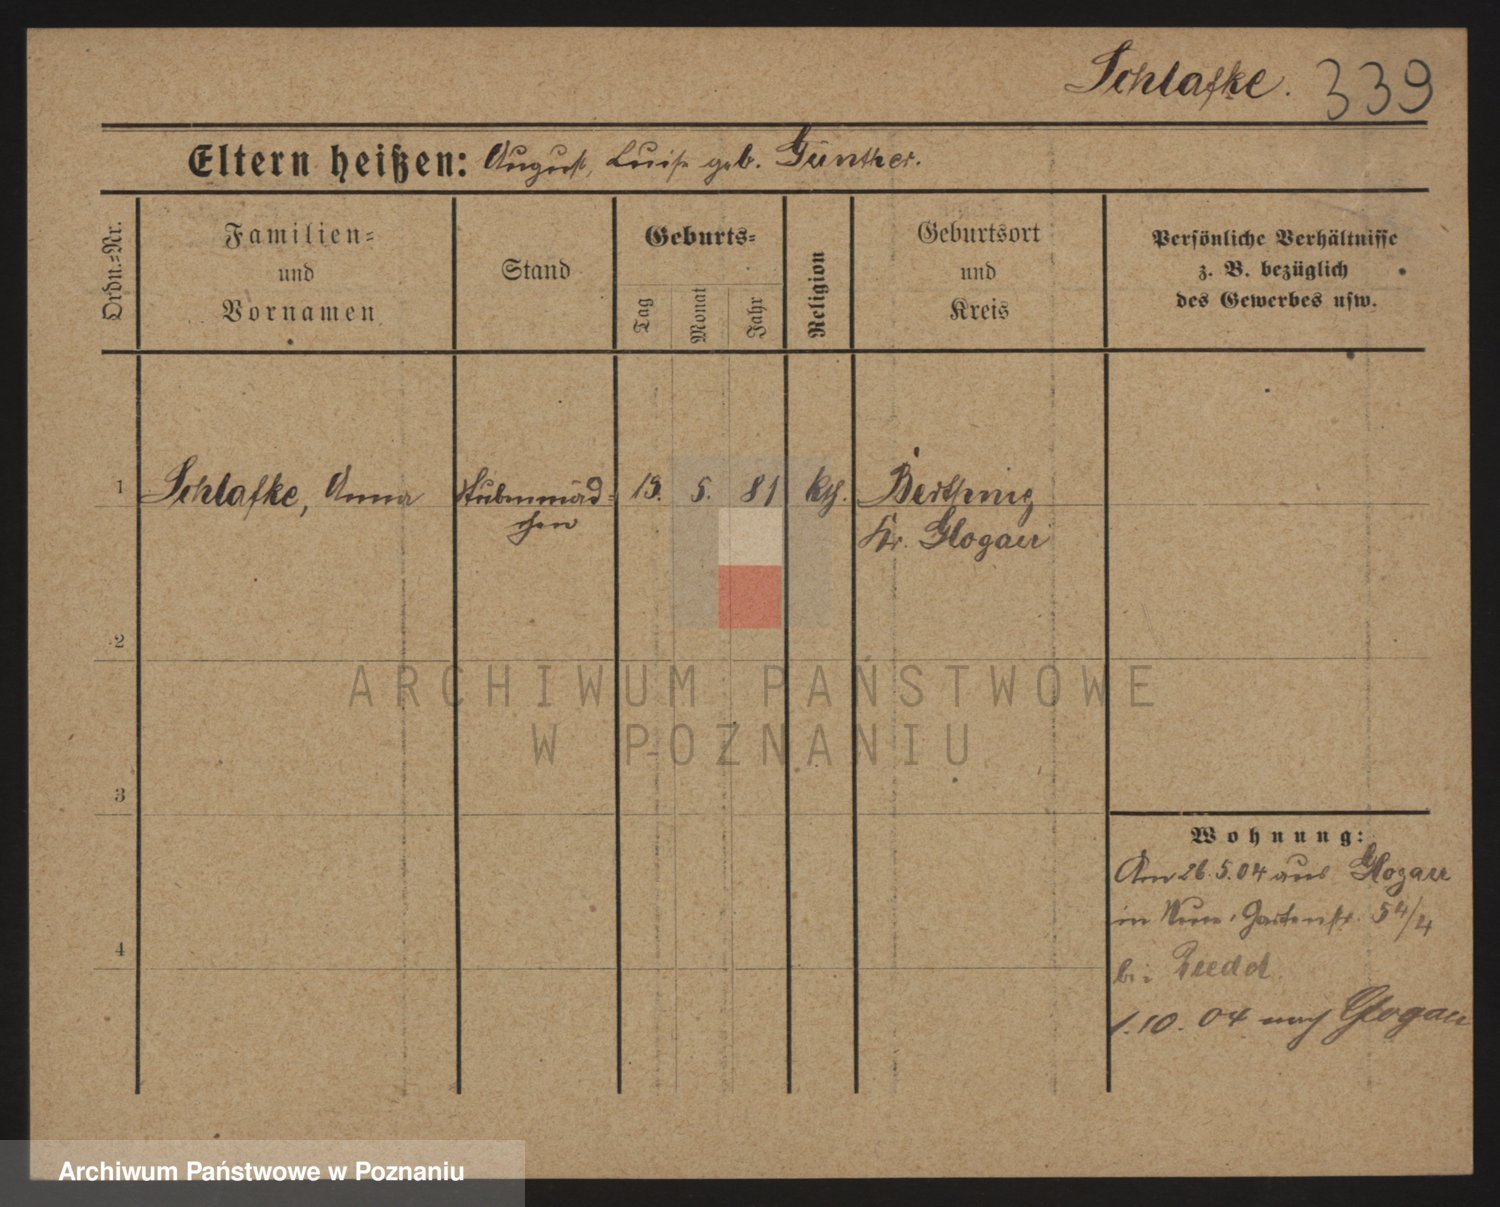 Schlafke. 339
Eltern heißen: August, Luise geb. Günther.
Ordn.=Nr.
Familien=
und
Vornamen
Stand
Geburts=
Tag
Monat
Jahr
Religion
Geburtsort
und
Kreis
Persönliche Verhältnisse
z. B. bezüglich
des Gewerbes usw.
1 Schlafke, Anna Stubenmäd= 15. 5. 81 kth.
chen Kr. Glogau
2
ARCHIWUM PAŃSTWOWE
W POZNANIU
3
Wohnung:
Am 26.5.04 aus Glogau
in Gartenstr.
4
bei
1.10.04 nach Glogau
Archiwum Państwowe w Poznaniu